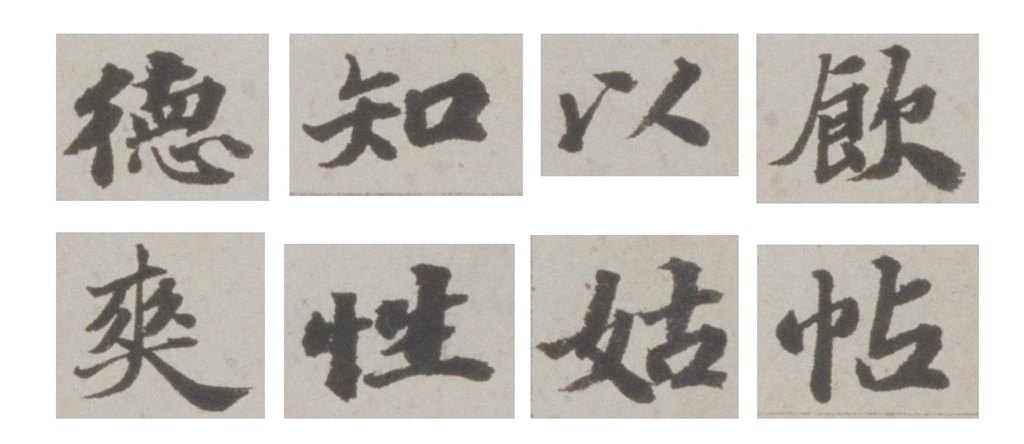 德知以飲
爽性姑帖